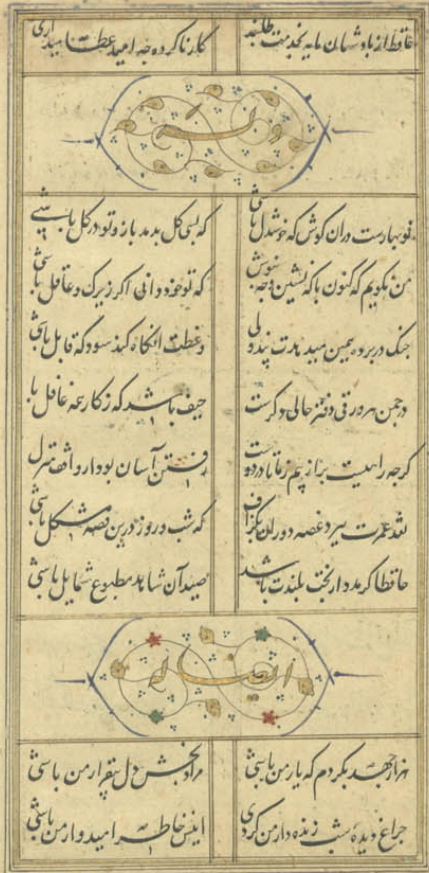 حافظ از پادشهان مایه بخدمت طلبند کار ناکرده چه امید عطا میداری
وله
نوبهارست دران کوش که خوشدل باشی که بسی کل بدمد باز و تو در کل باشی
من نکویم که کنون با که نشین و چه بنوش که تو خود دانی اکر زیرک و عاقل باشی
چنک در پرده همین میدهدت پند ولی وعظت آنکاه کند سود که قابل باشی
در چمن هر ورقی دفتر حالی دکرست حیف باشد که ز کار همه غافل باشی
کرچه راهیست پر از بیم ز ما تا در دوست رفتن آسان بود ار واقف منزل
نقد عمرت ببرد غصه دوران بکزاف که شب و روز درین قصه مشکل باشی
حافظا کر مدد از بخت بلندت باشد صید آن شاهد مطبوع شمایل باشی
ایضا له
هزار جهد بکردم که یار من باشی مراد بخش دل بیقرار من باشی
چراغ دیده شب زنده دار من کردی انیس خاطر امیدوار من باشی